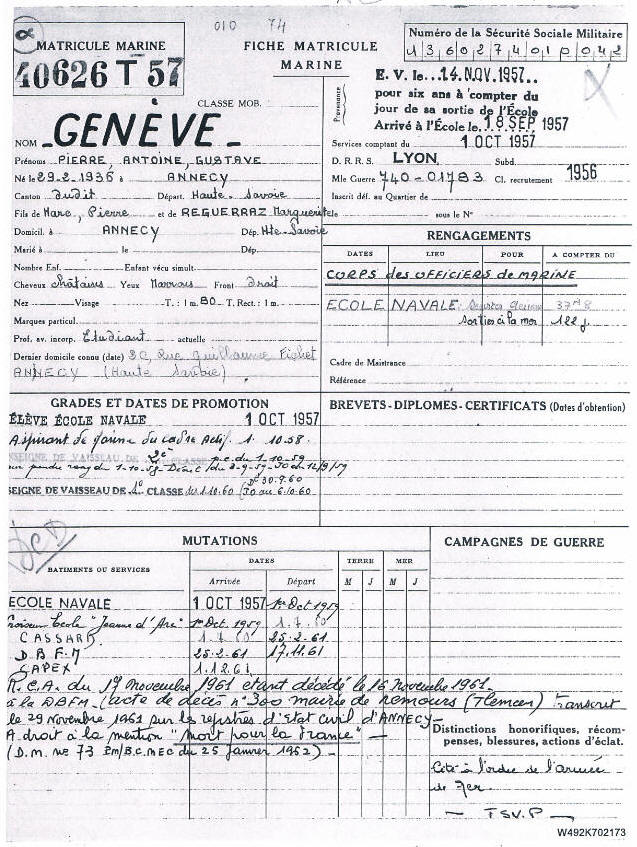 010 74
MATRICULE MARINE
40626 T 57
FICHE MATRICULE
MARINE
CLASSE MOB.
Numéro de la Sécurité Sociale Militaire
136027401P042
Provenance
E. V. le... 14. NOV. 1957..
pour six ans à compter du
jour de sa sortie de l'École
Arrivé à l'École le. 18 SEP 1957
Services comptant du 1 OCT 1957
D. R. R. S. LYON Subd.
Mle Guerre 740-01783 Cl. recrutement 1956
Inscrit déf. au Quartier de
sous le N°
NOM -GENÈVE-
Prénoms PIERRE, ANTOINE, GUSTAVE
Né le 29-2-1936 à ANNECY
Canton dudit Départ. Haute-Savoie
Fils de Marc, Pierre et de REGUERRAZ Marguerite
Domicil. à ANNECY Dép. Hte-Savoie
Marié à le Dép.
Nombre Enf. Enfant vécu simult.
Cheveux châtains Yeux Marrons Front droit
Nez Visage T. : 1 m. 80 T. Rect. : 1 m.
Marques particul.
Prof. av. incorp. Etudiant actuelle
Dernier domicile connu (date) 3C, Rue Guillaume Fichet
ANNECY (Haute Savoie)
RENGAGEMENTS
DATES LIEU POUR A COMPTER DU
CORPS des OFFICIERS de MARINE
ECOLE NAVALE:
Sorties à la mer 122 j.
Cadre de Maistrance
Référence
GRADES ET DATES DE PROMOTION
ÉLÈVE ÉCOLE NAVALE 1 OCT 1957
Aspirant de marine du cadre Actif 1. 10.58.
ENSEIGNE DE VAISSEAU DE 2e CLASSE p.c. du 1-10-59
pr prendre rang du 1-10-58- Décret du 8-9-59 JO du 12/9/59
D° 30.9.60
SEIGNE DE VAISSEAU DE 1° CLASSE du 1.10.60 (JO du 6.10.60)
BREVETS - DIPLOMES - CERTIFICATS (Dates d'obtention)
DCD
MUTATIONS
BATIMENTS OU SERVICES DATES TERRE MER
Arrivée Départ M J M J
ECOLE NAVALE 1 OCT 1957 1er Oct 1959
Croiseur Ecole "Jeanne d'Arc" 1er Oct 1959 1.7.60
CASSARD 1.7.60 25.2.61
D.B.F.M 25.2.61 17.11.61
CAPEX 1.12.61
R.C.A. du 17 novembre 1961 étant décédé le 16 Novembre 1961.
à la DBFM (acte de décès n° 300 mairie de Nemours (Tlemcen) transcrit
le 29 Novembre 1961 sur les registres d'Etat Civil d'ANNECY-
A droit à la mention "Mort pour la France" -
(D.M. n° 73 EM/B.C.MEC du 25 janvier 1962) -
CAMPAGNES DE GUERRE
Distinctions honorifiques, récom-
penses, blessures, actions d'éclat.
Cité à l'ordre de l'armée
de mer
- TSV.P -
W492K702173